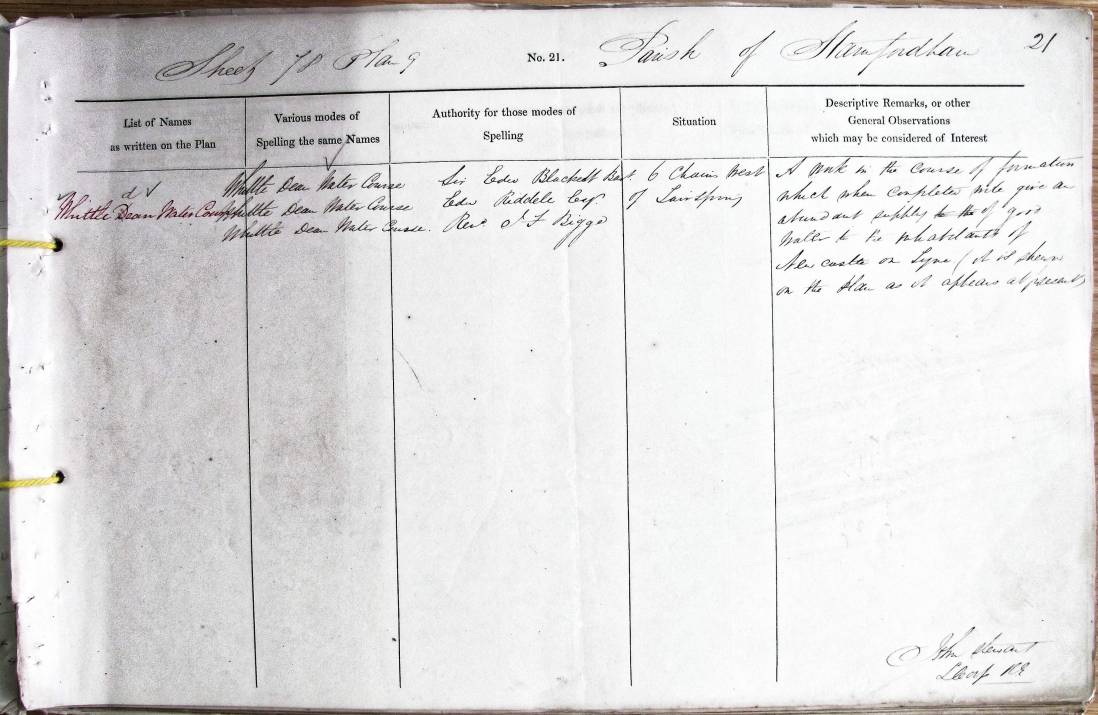 Sheet 78 Plan 9
No. 21.
Parish of Stamfordham
21
List of Names
as written on the Plan
Various modes of
Spelling the same Names
Authority for those modes of
Spelling
Situation
Descriptive Remarks, or other
General Observations
which may be considered of Interest
d
Whittle Dean Water Course
Whittle Dean Water Course
Whittle Dean Water Course
Whittle Dean Water Course.
Sir Edw Blackett Bart.
Edw Riddell Esqr
Revd. J F Bigge
6 Chains West
of Fairspring
A Work in the Course of formation
which when completed will give an
abundant supply of good
Water to the inhabitants of
Newcastle on Tyne (it is shewn
on the Plan as it appears at present)
John Stewart
LCorpl RE